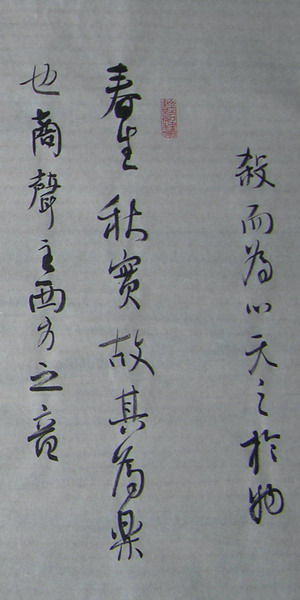 殺而為心天之於物
春生秋實故其為樂
也商聲主西方之音